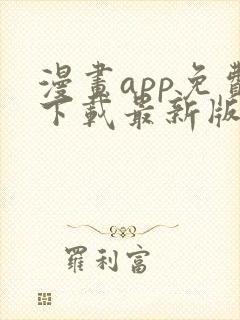 漫畫app免費
下載最新版
羅利富